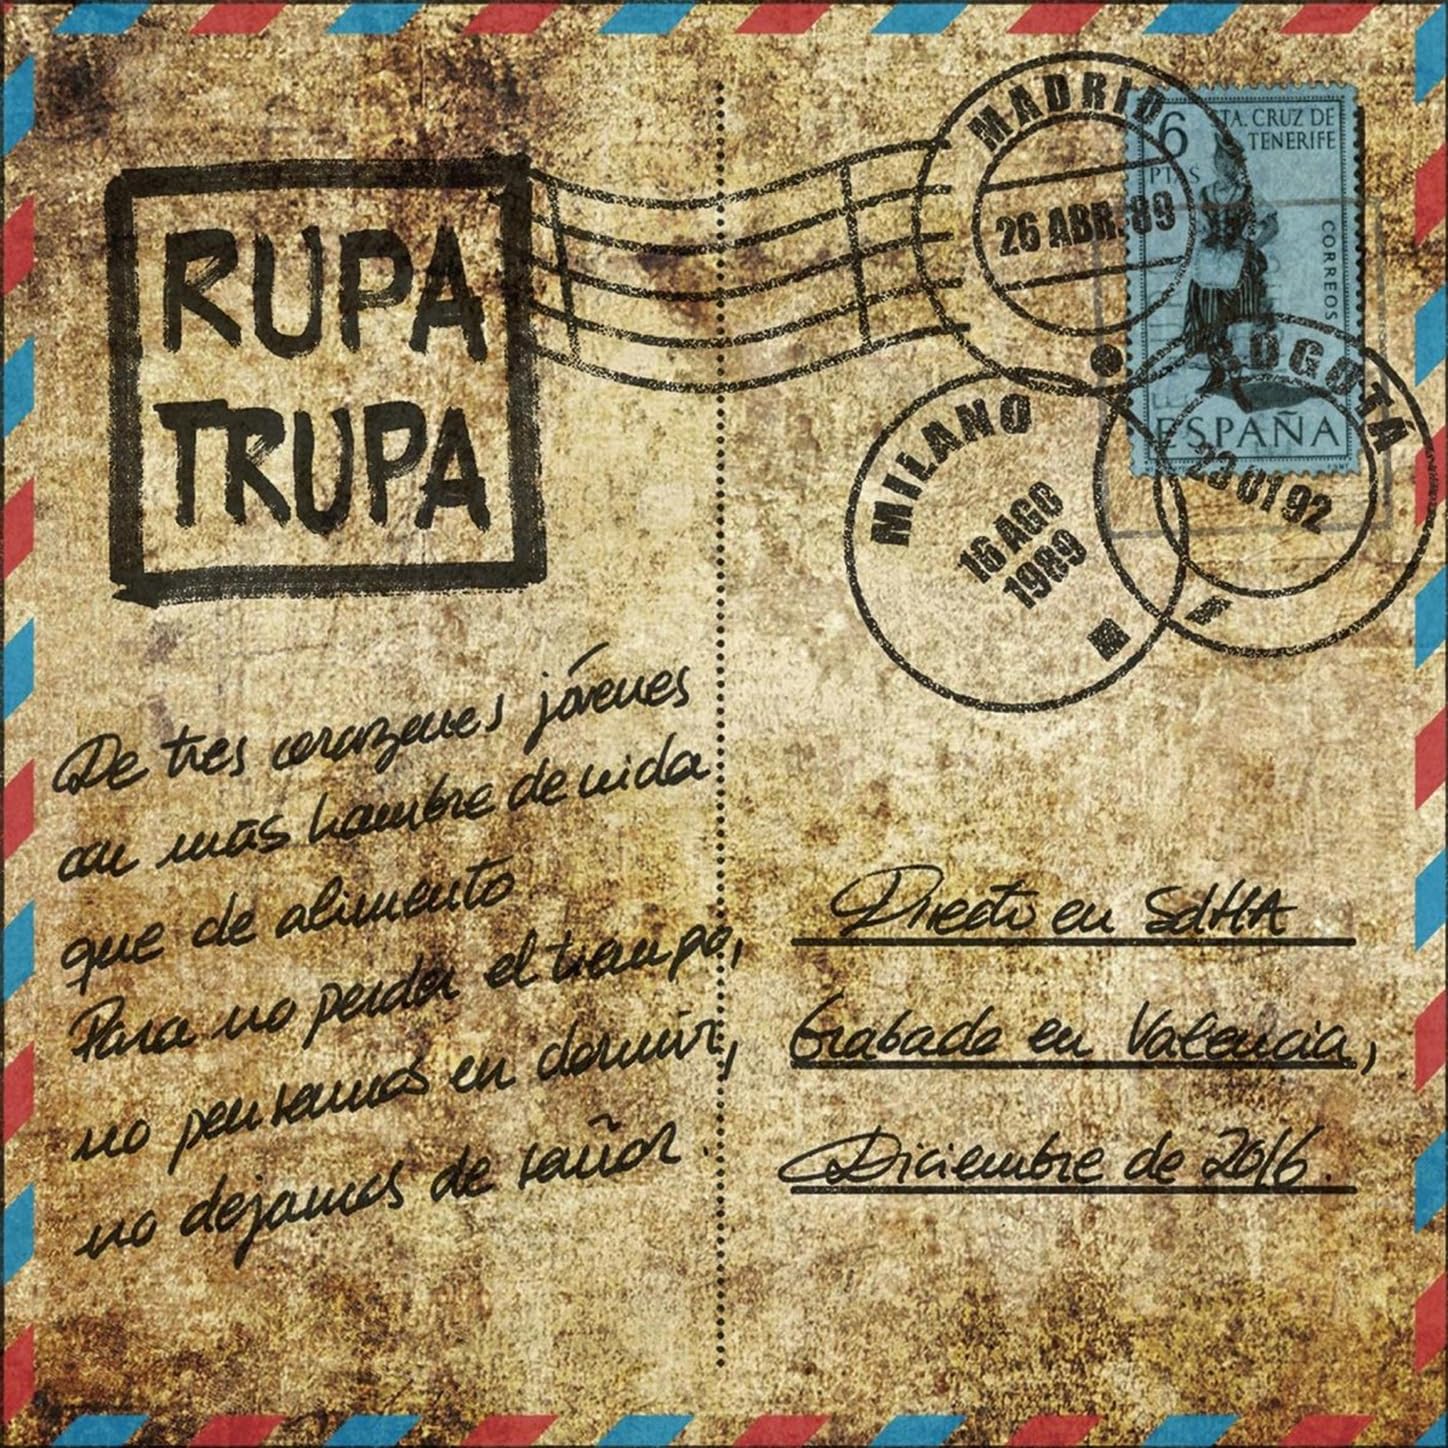 RUPA
TRUPA
MADRID
26 ABR. 89
6
PTAS
TA. CRUZ DE
TENERIFE
CORREOS
ESPAÑA
MILANO
16 AGO
1989
BOGOTÁ
23 01 92
De tres corazones jóvenes
con más hambre de vida
que de alimento
Para no perder el tiempo,
no pensemos en dormir,
no dejamos de soñar.
Directo en SdHA
Grabado en Valencia,
Diciembre de 2016.